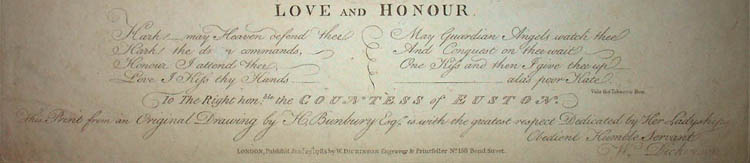 LOVE AND HONOUR.
Hark may Heaven defend thee
Hark! the commands,
Honour I attend thee,
Love I Kiss thy Hands
May Guardian Angels watch thee
And Conquest on thee wait
One Kiss and then I give thee up
alas poor Kate
Vide the Tobacco Box
To The Right hon.ble the COUNTESS of EUSTON.
This Print from an Original Drawing by H. Bunbury Esq.r is with the greatest respect Dedicated by Her Ladyship
Obedient Humble Servant
W.m Dickinson
LONDON, Publish'd by W. DICKINSON Engraver & Printseller No. 158 Bond Street.